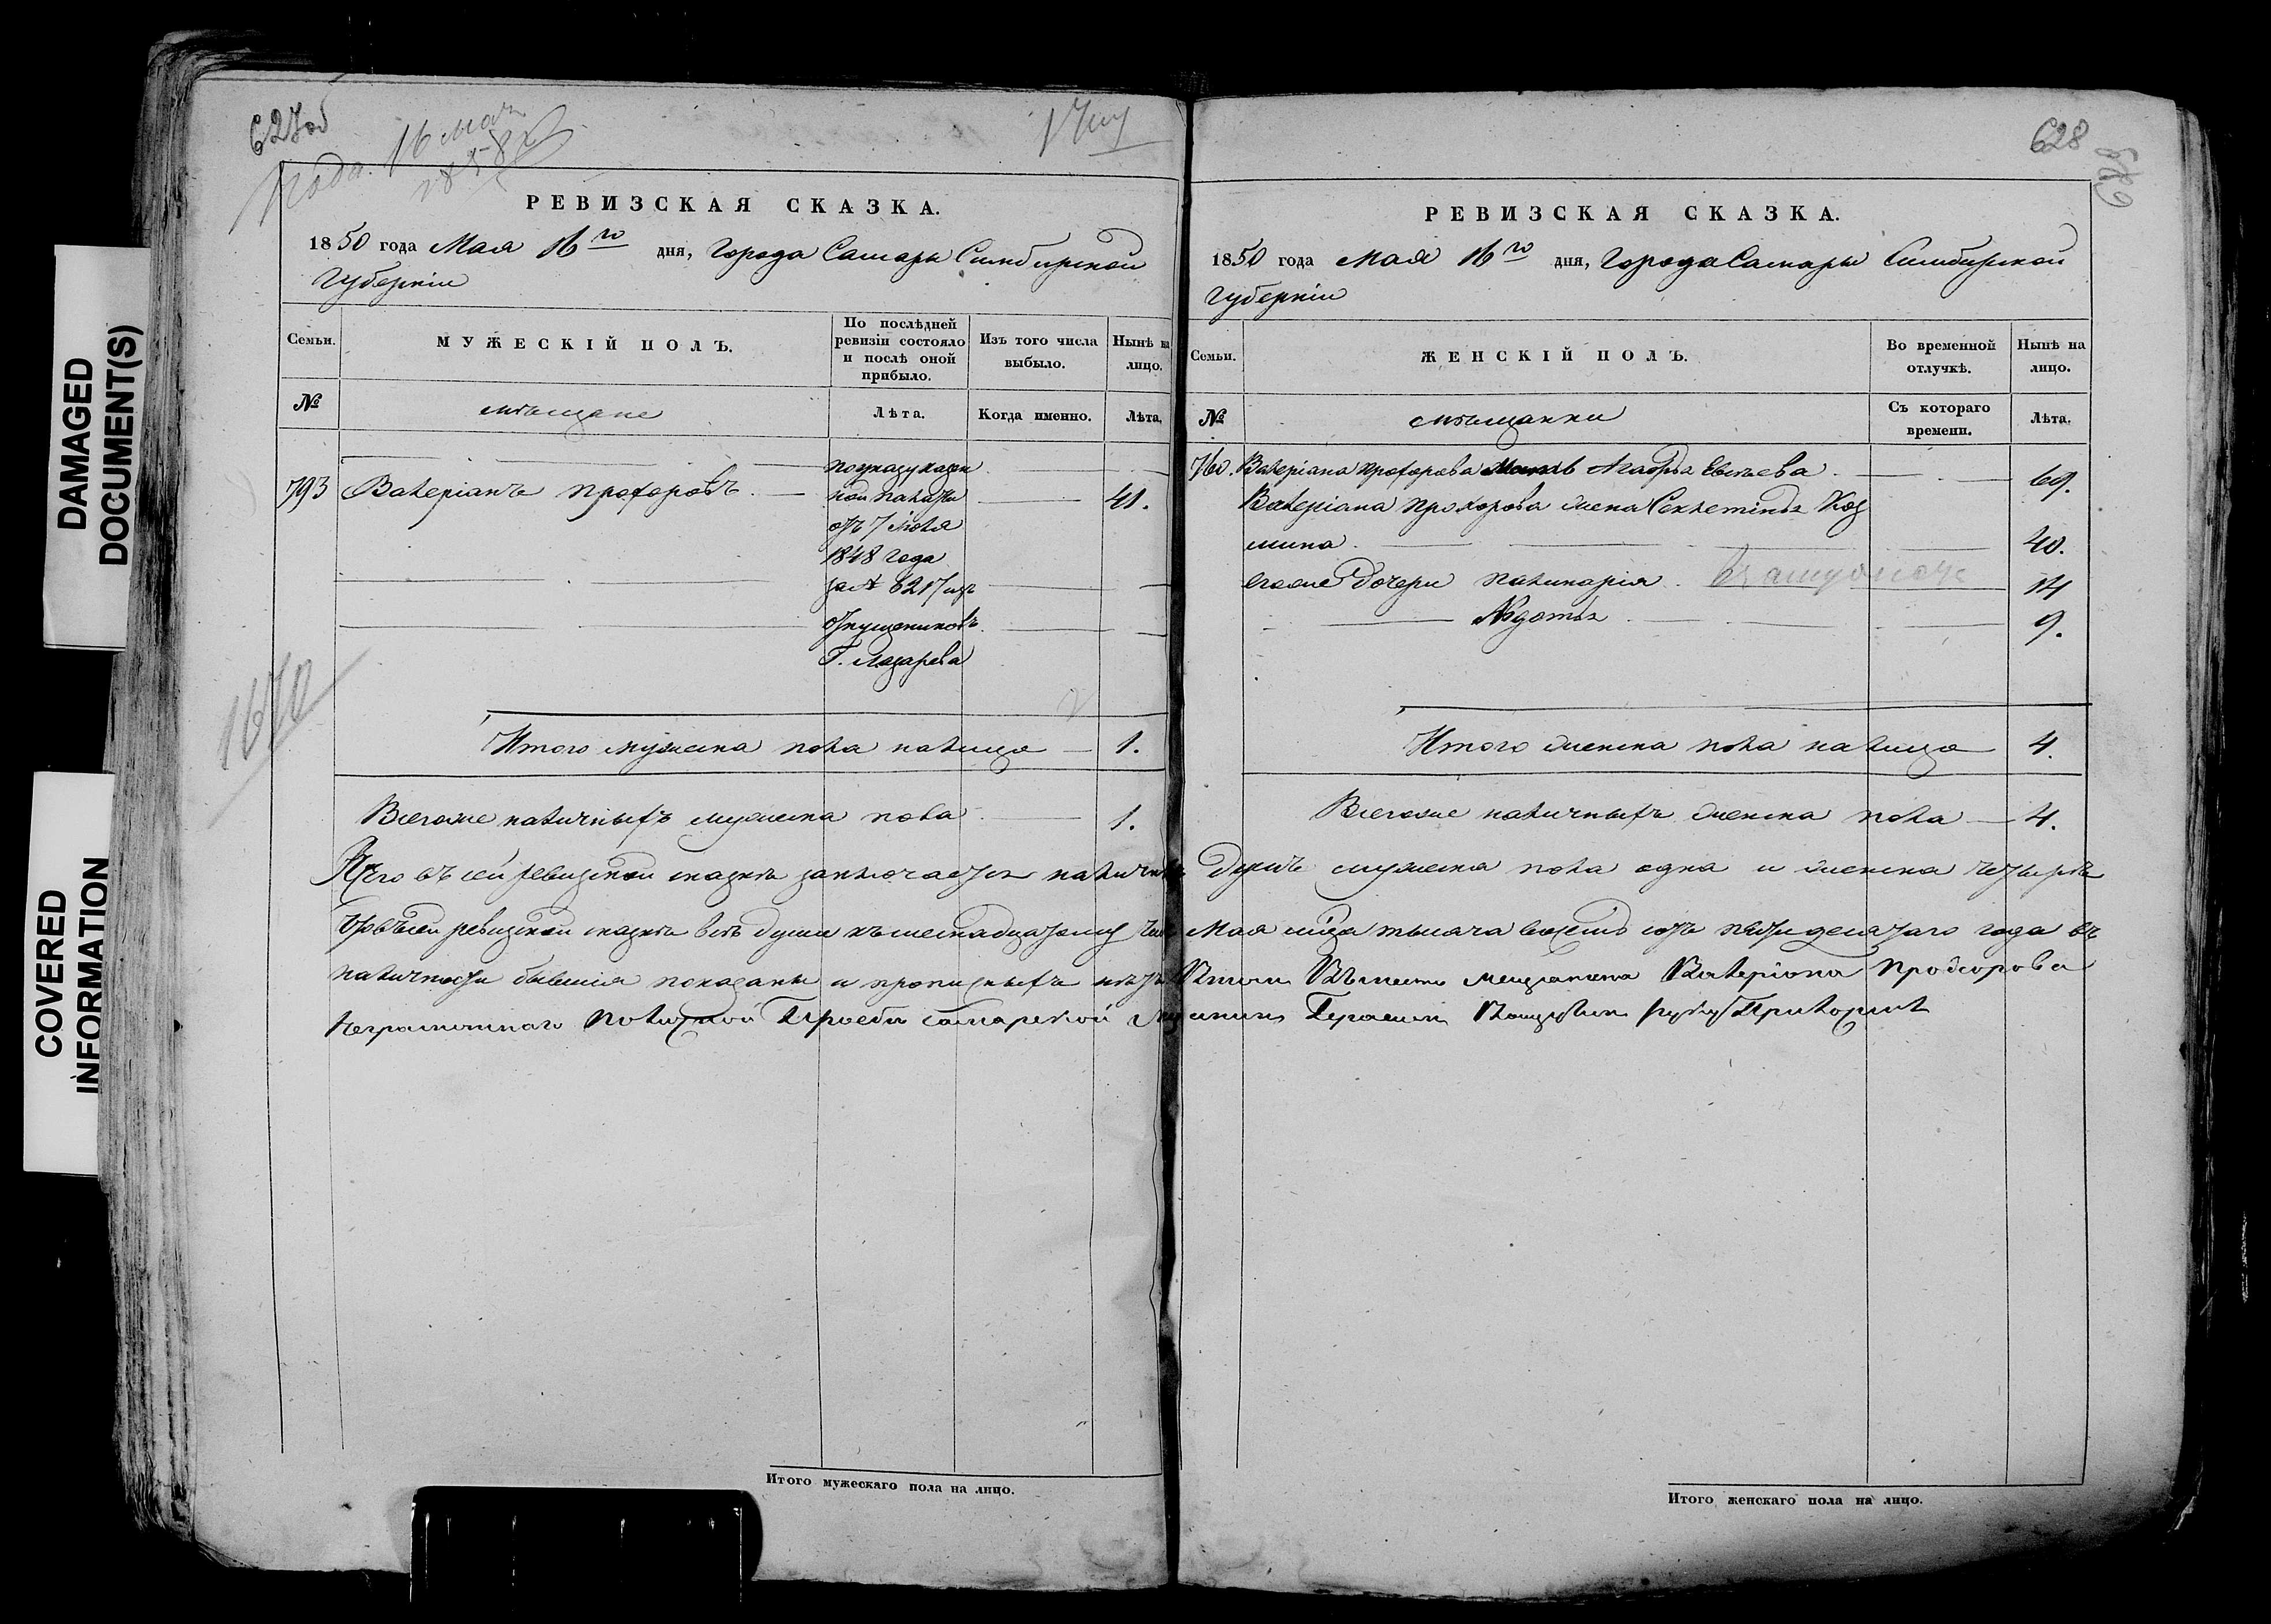 DAMAGED
DOCUMENT(S)
COVERED
INFORMATION
627об
16 мая
РЕВИЗСКАЯ СКАЗКА.
1850 года Мая 16го дня, Города Самары Симбирской
Губерніи
Семьи.
МУЖЕСКІЙ ПОЛЪ.
По послѣдней
ревизіи состояло
и послѣ оной
прибыло.
Изъ того числа
выбыло.
Нынѣ на
лицо.
№
мѣщане
Лѣта.
Когда именно.
Лѣта.
793 Валеріанъ Прохоровъ 41.
по указу казен
ной палаты
отъ 7 Июля
1848 года
за № 6217 изъ
отпущениковъ
Г. Лазарева
Итого мужеска пола налицо 1.
Всегоже наличныхъ мужеска пола 1.
1670
Итого мужескаго пола на лицо.
628
РЕВИЗСКАЯ СКАЗКА.
1850 года Мая 16го дня, Города Самары Симбирской
Губерніи
Семьи.
ЖЕНСКІЙ ПОЛЪ.
Во временной
отлучкѣ.
Нынѣ на
лицо.
№
мѣщанки
Съ котораго
времени.
Лѣта.
760. Валеріана Прохорова Мать Агафья Евсѣева 69.
Валеріана Прохорова жена Секлетинья Коз
мина 40.
егоже Дочери Палинарія 14
Авдотья 9.
Итого женска пола налицо 4.
Всегоже наличныхъ женска пола 4.
Итого въ сей ревизской сказкѣ заключается наличныхъ Душъ мужеска пола одна и женска четыре
Что въ сей ревизской сказкѣ всѣ души къ шестнадцатому числу Мая мца тысяча восемь сотъ пятидесятаго года въ
наличности бывшия показаны и прописныхъ нѣтъ Втом Вѣместо мещанина Валеріяна Прохорова
Неграмотнаго Поличной Прозбѣ самарской Мещанинъ Герасим руку Приложилъ
Итого женскаго пола на лицо.